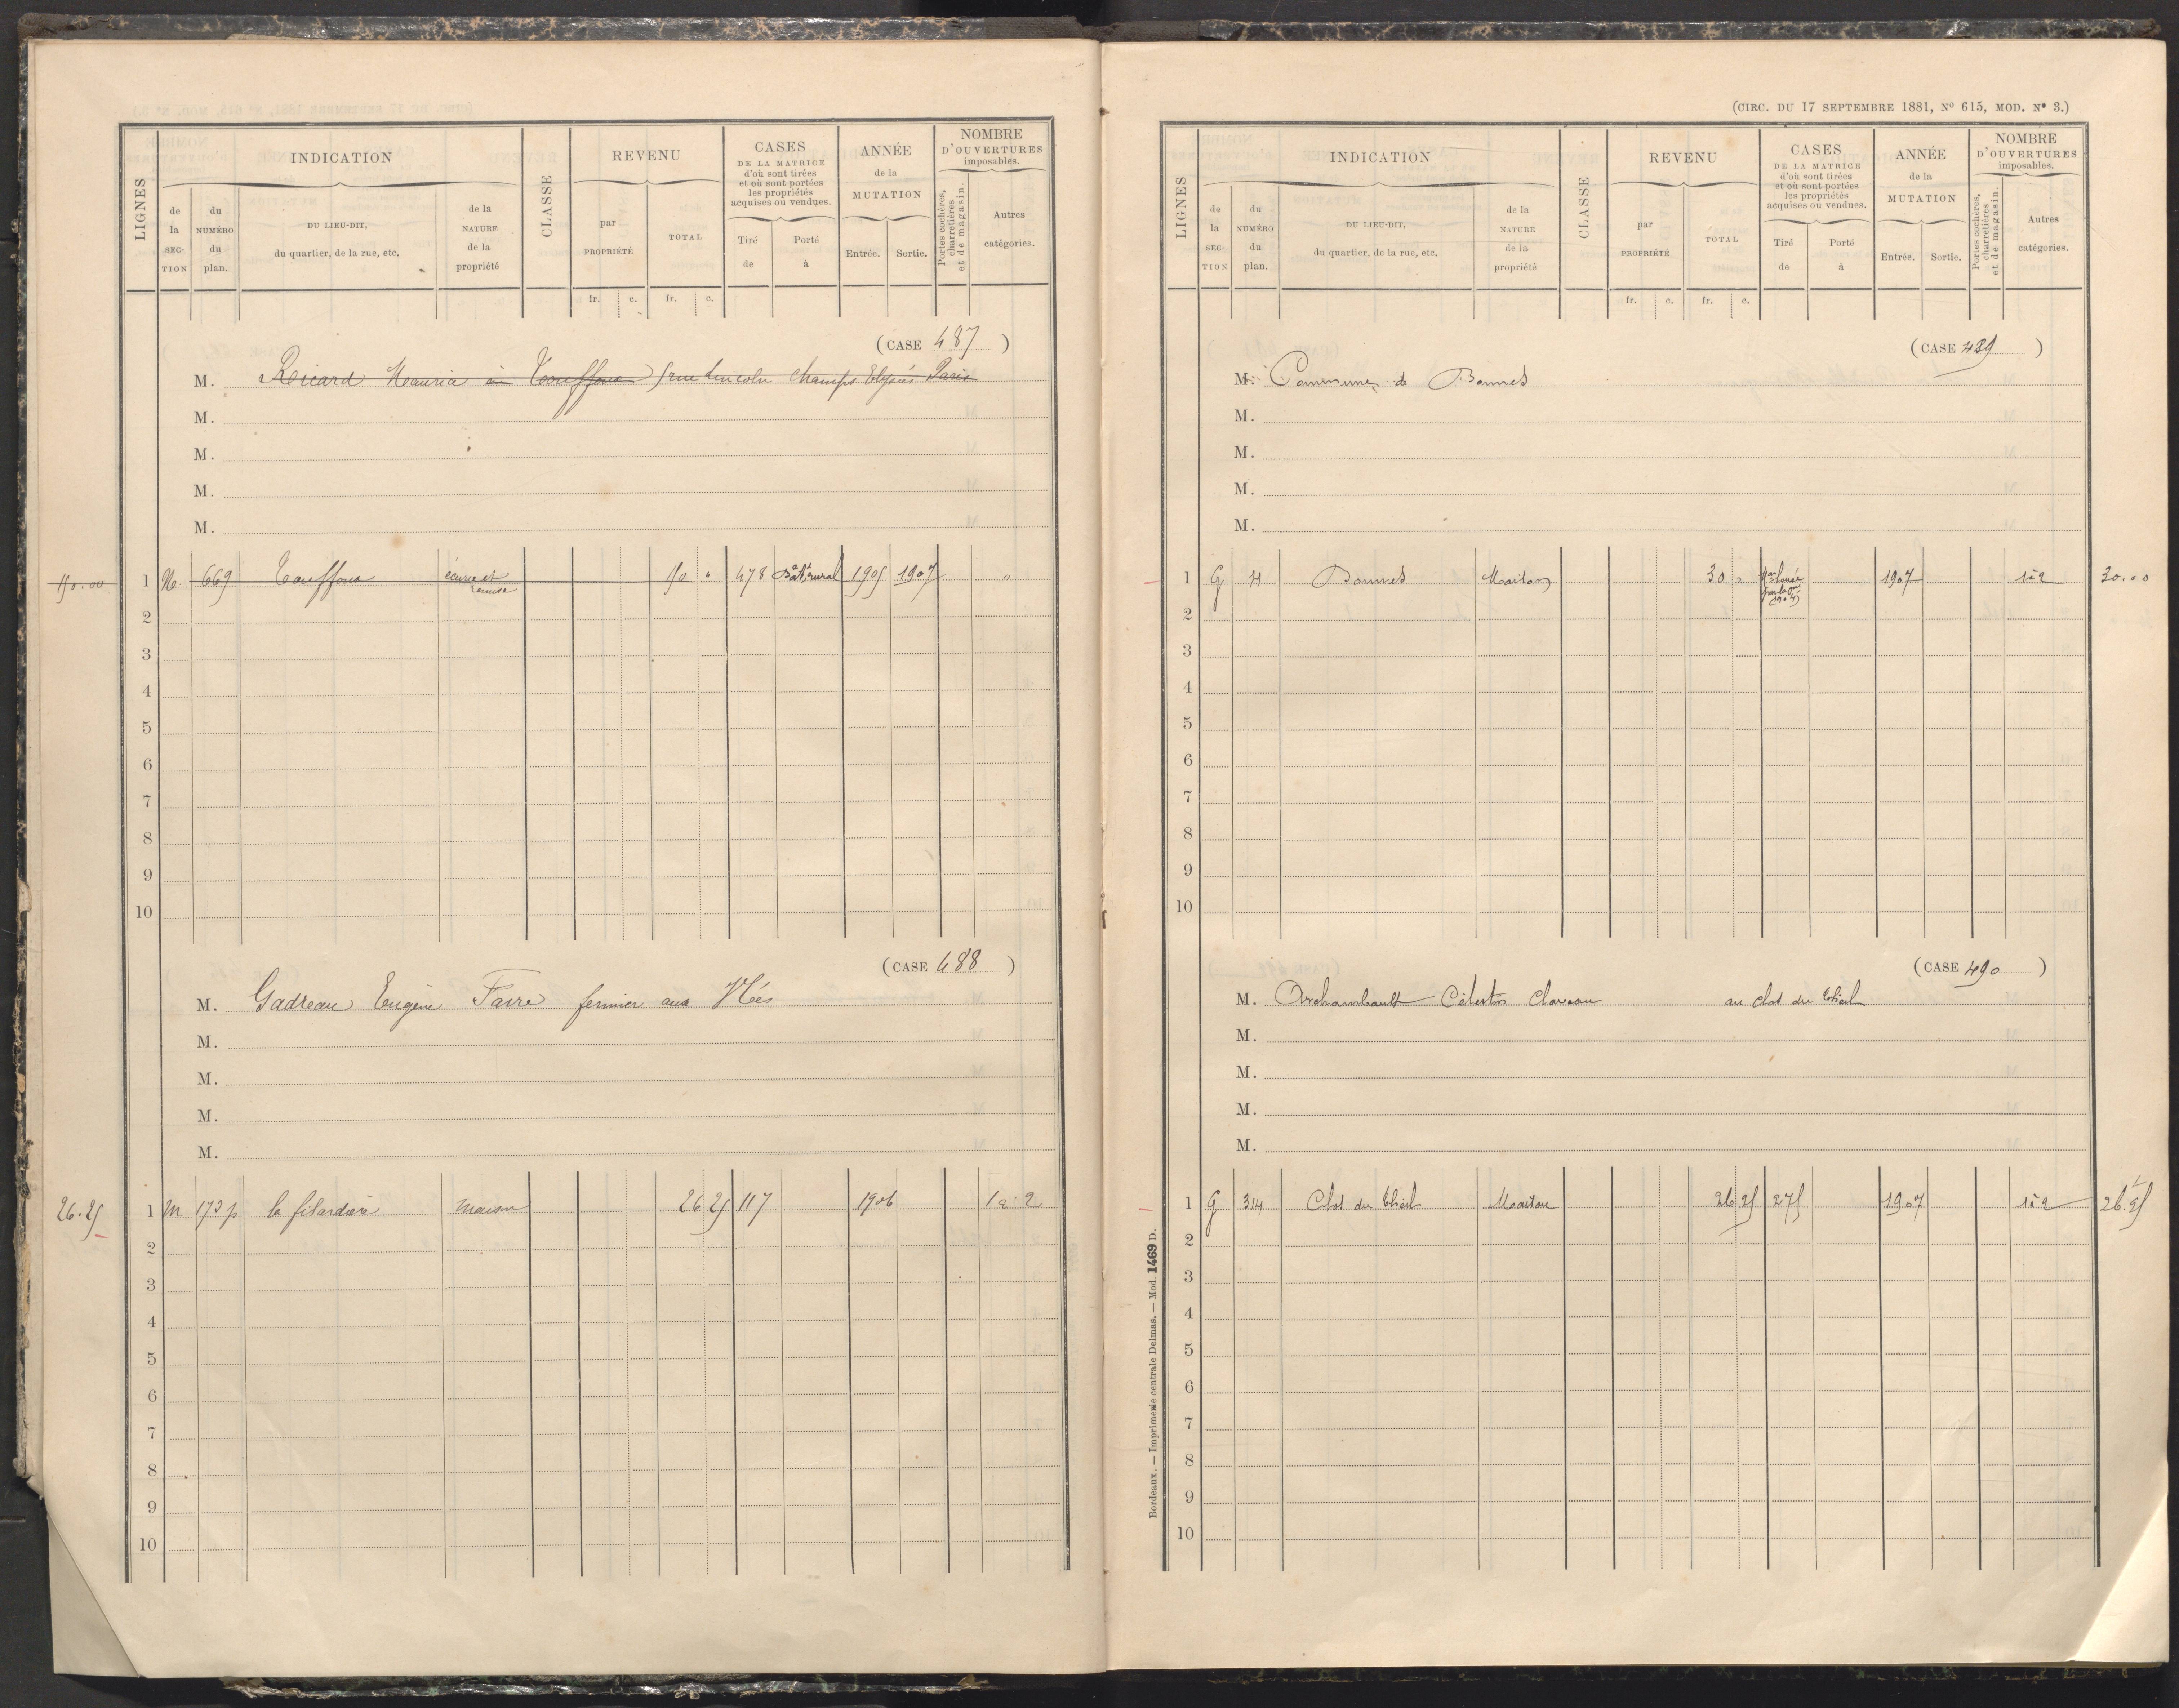 INDICATION
REVENU
CASES
DE LA MATRICE
d'où sont tirées
et où sont portées
les propriétés
acquises ou vendues.
ANNÉE
de la
MUTATION
NOMBRE
D'OUVERTURES
imposables.
LIGNES
de
la
SEC-
TION
du
NUMÉRO
du
plan.
DU LIEU-DIT,
du quartier, de la rue, etc.
de la
NATURE
de la
propriété
CLASSE
par
PROPRIÉTÉ
TOTAL
Tiré
de
Porté
à
Entrée.
Sortie.
Portes cochères,
charretières
et de magasin.
Autres
catégories.
fr. c. fr. c.
(CASE 487)
M. Ricard Maurice à Touffou 5 rue Lincoln Champs Elysées Paris
M.
M.
M.
M.
150.00 1 N. 669 Touffou écurie et remise 150 " 478 Bât. rural 1905 1907 "
2
3
4
5
6
7
8
9
10
(CASE 488)
M. Gadreau Eugène Favre fermier aux Nées
M.
M.
M.
M.
26.25 1 M 173 p maison 26 25 117 1906 1 à 2
2
3
4
5
6
7
8
9
10
(CIRC. DU 17 SEPTEMBRE 1881, Nº 615, MOD. Nº 3.)
INDICATION
REVENU
CASES
DE LA MATRICE
d'où sont tirées
et où sont portées
les propriétés
acquises ou vendues.
ANNÉE
de la
MUTATION
NOMBRE
D'OUVERTURES
imposables.
LIGNES
de
la
SEC-
TION
du
NUMÉRO
du
plan.
DU LIEU-DIT,
du quartier, de la rue, etc.
de la
NATURE
de la
propriété
CLASSE
par
PROPRIÉTÉ
TOTAL
Tiré
de
Porté
à
Entrée.
Sortie.
Portes cochères,
charretières
et de magasin.
Autres
catégories.
fr. c. fr. c.
(CASE 489)
M. Commune de Bonnes
M.
M.
M.
M.
1 G 4 Bonnes Maison 30 " 1907 1 à 2 30.00
2
3
4
5
6
7
8
9
10
(CASE 490)
M. Archambault Célestin Claveau au clos du Theil
M.
M.
M.
M.
1 G 314 Clos du Theil Maison 26 25 275 1907 1 à 2 26.25
2
3
4
5
6
7
8
9
10
Bordeaux. — Imprimerie centrale Delmas. — Mod. 1469 D.